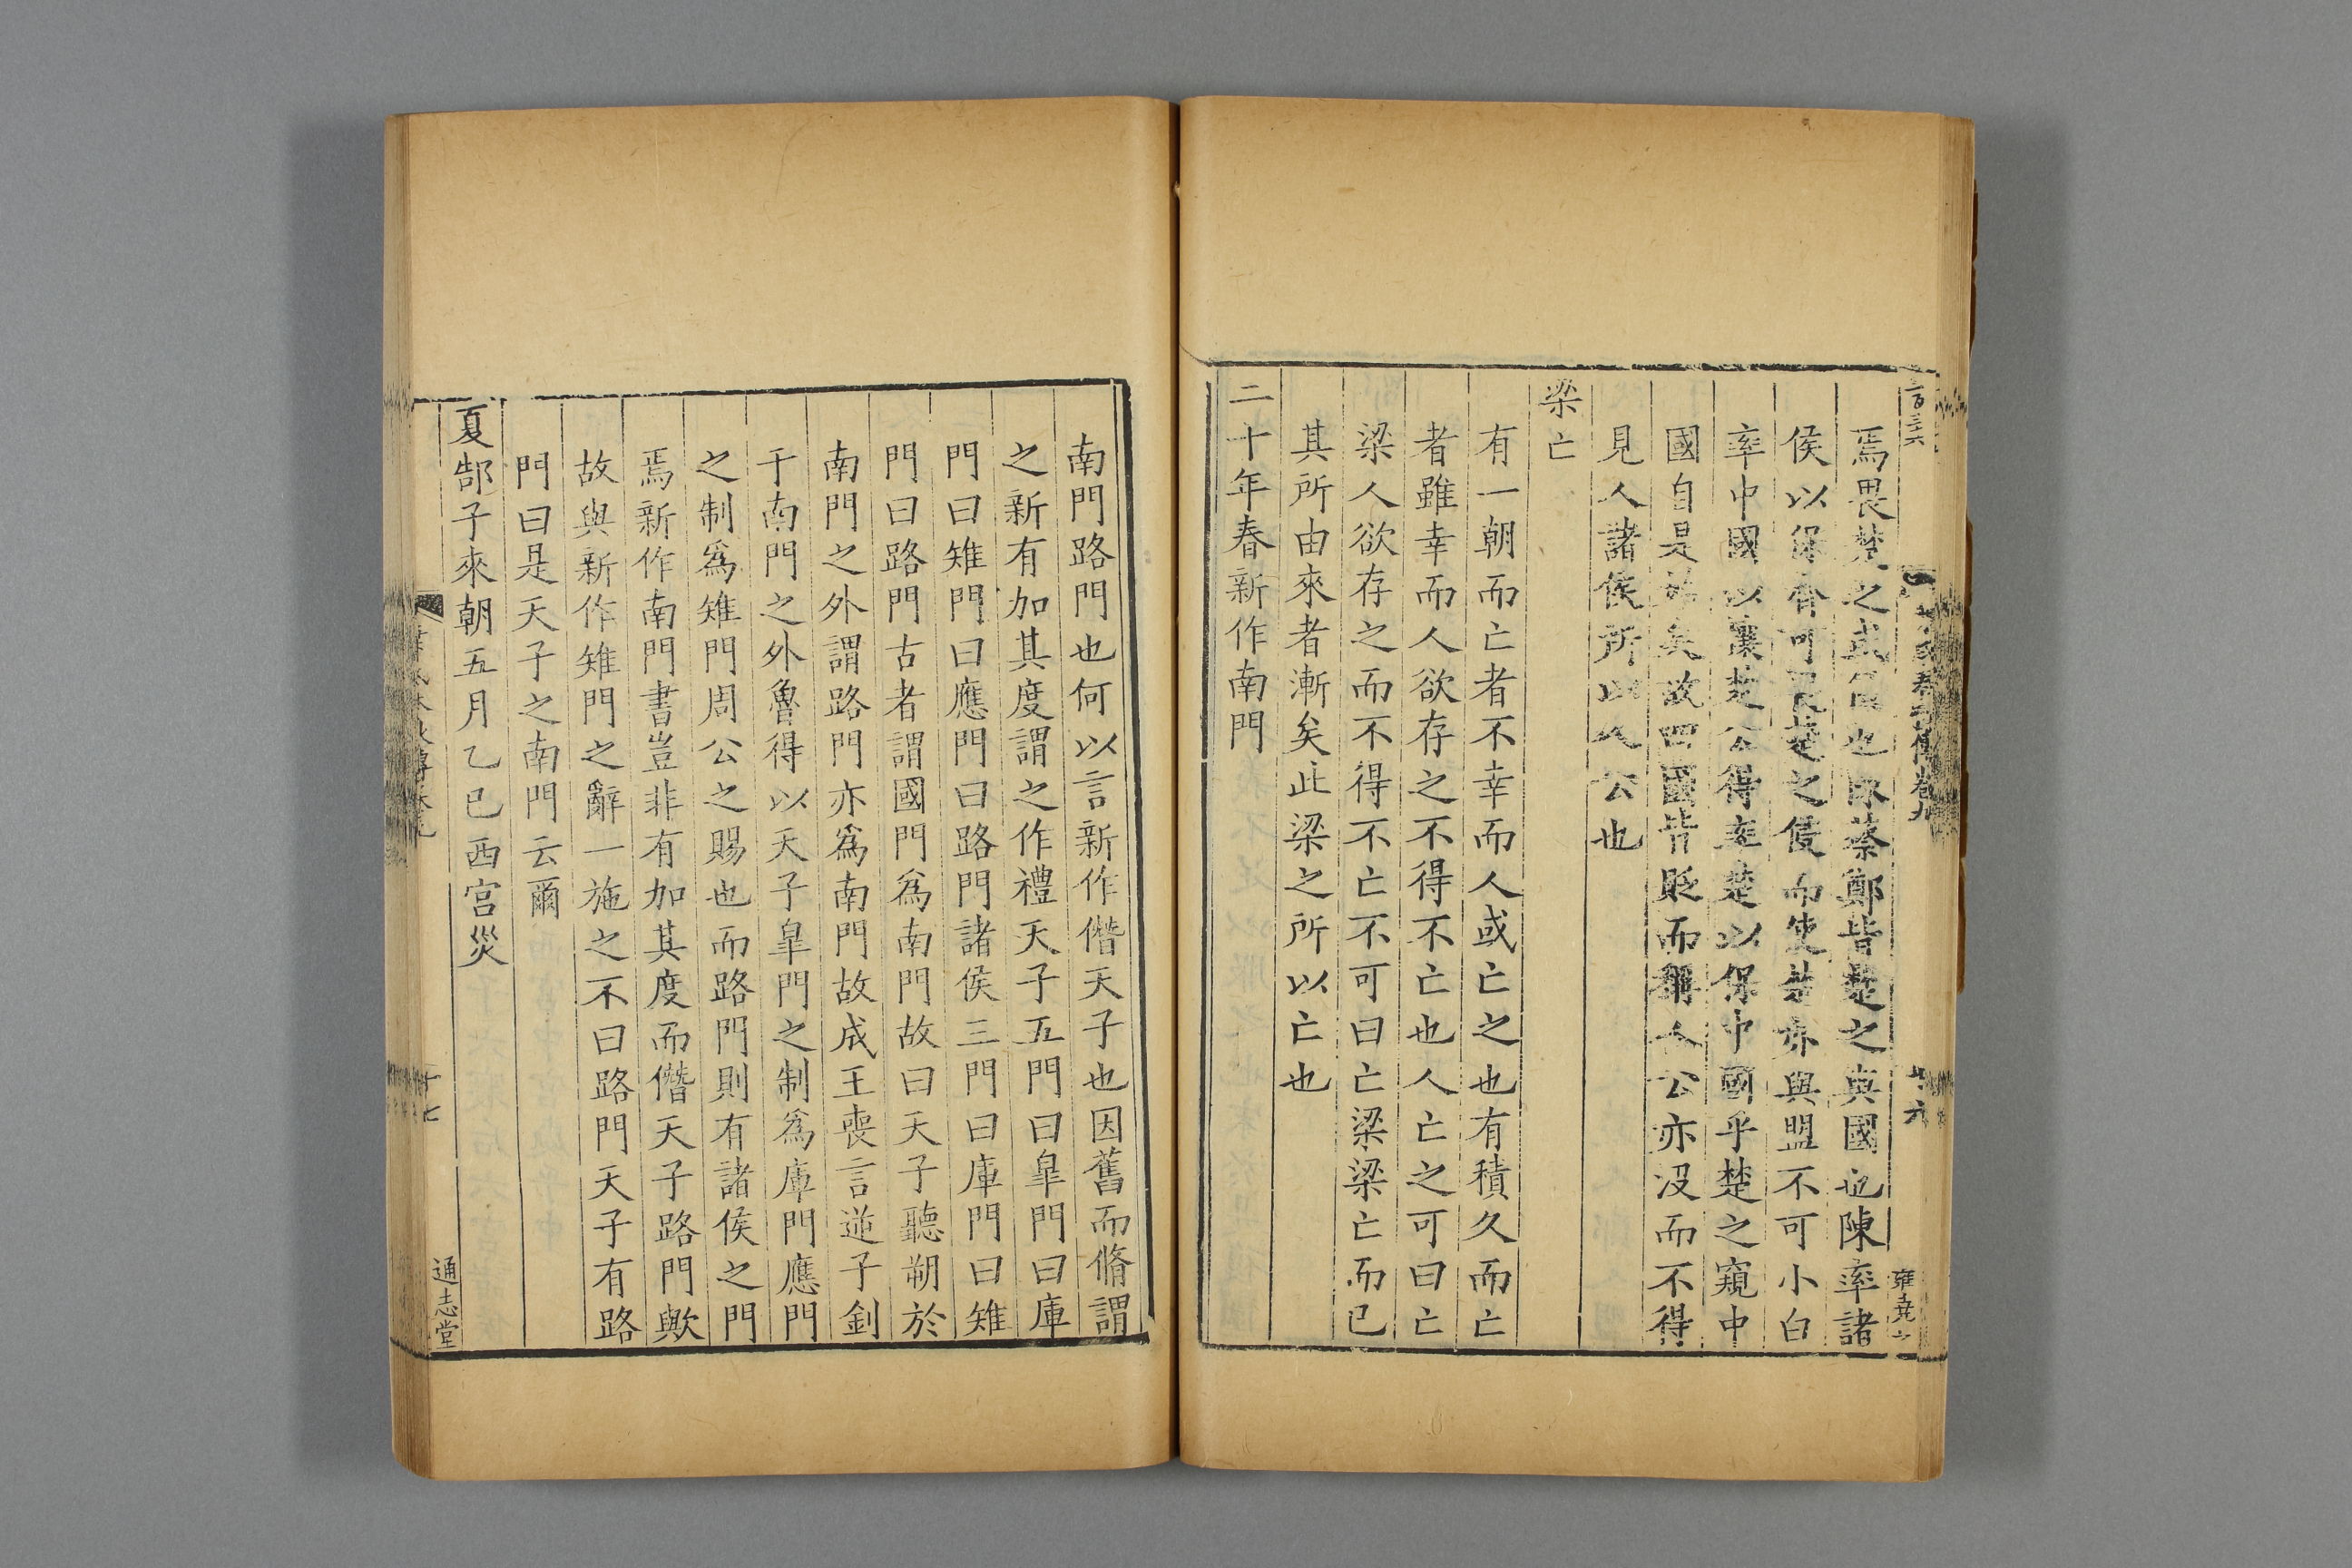 焉畏楚之也陳蔡鄭皆楚之與國也陳率諸
侯以保可楚之侵而使楚亦與盟不可小白
率中國以攘楚公得率楚以保中國乎楚之窺中
國自是矣故四國皆貶而稱人公亦没而不得
見人諸侯所以人公也
梁亡
有一朝而亡者不幸而人或亡之也有積久而亡
者雖幸而人欲存之不得不亡也人亡之可曰亡
梁人欲存之而不得不亡不可曰亡梁梁亡而已
其所由來者漸矣此梁之所以亡也
二十年春新作南門
南門路門也何以言新作僭天子也因舊而脩謂
之新有加其度謂之作禮天子五門曰皐門曰庫
門曰雉門曰應門曰路門諸侯三門曰庫門曰雉
門曰路門古者謂國門爲南門故曰天子聽朔於
南門之外謂路門亦爲南門故成王喪言逆子釗
于南門之外魯得以天子皐門之制爲庫門應門
之制爲雉門周公之賜也而路門則有諸侯之門
焉新作南門書豈非有加其度而僭天子路門歟
故與新作雉門之辭一施之不曰路門天子有路
門曰是天子之南門云爾
夏郜子來朝五月乙巳西宮災
十七
通志堂